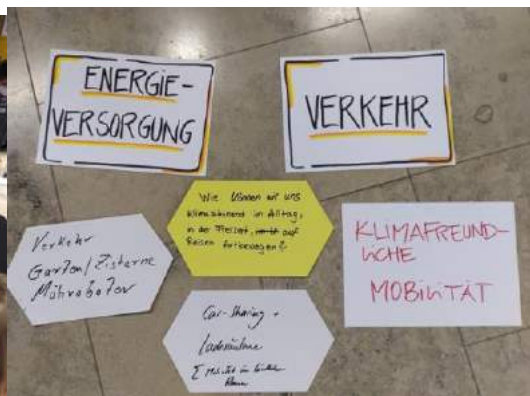 ENERGIE-
VERSORGUNG
VERKEHR
Wie können wir uns
klimaschonend im Alltag,
in der Freizeit, auf
Reisen fortbewegen?
Verkehr
Garten/Zisterne
Mähroboter
KLIMAFREUND-
LICHE
MOBILITÄT
Car-Sharing +
Ladesäulen